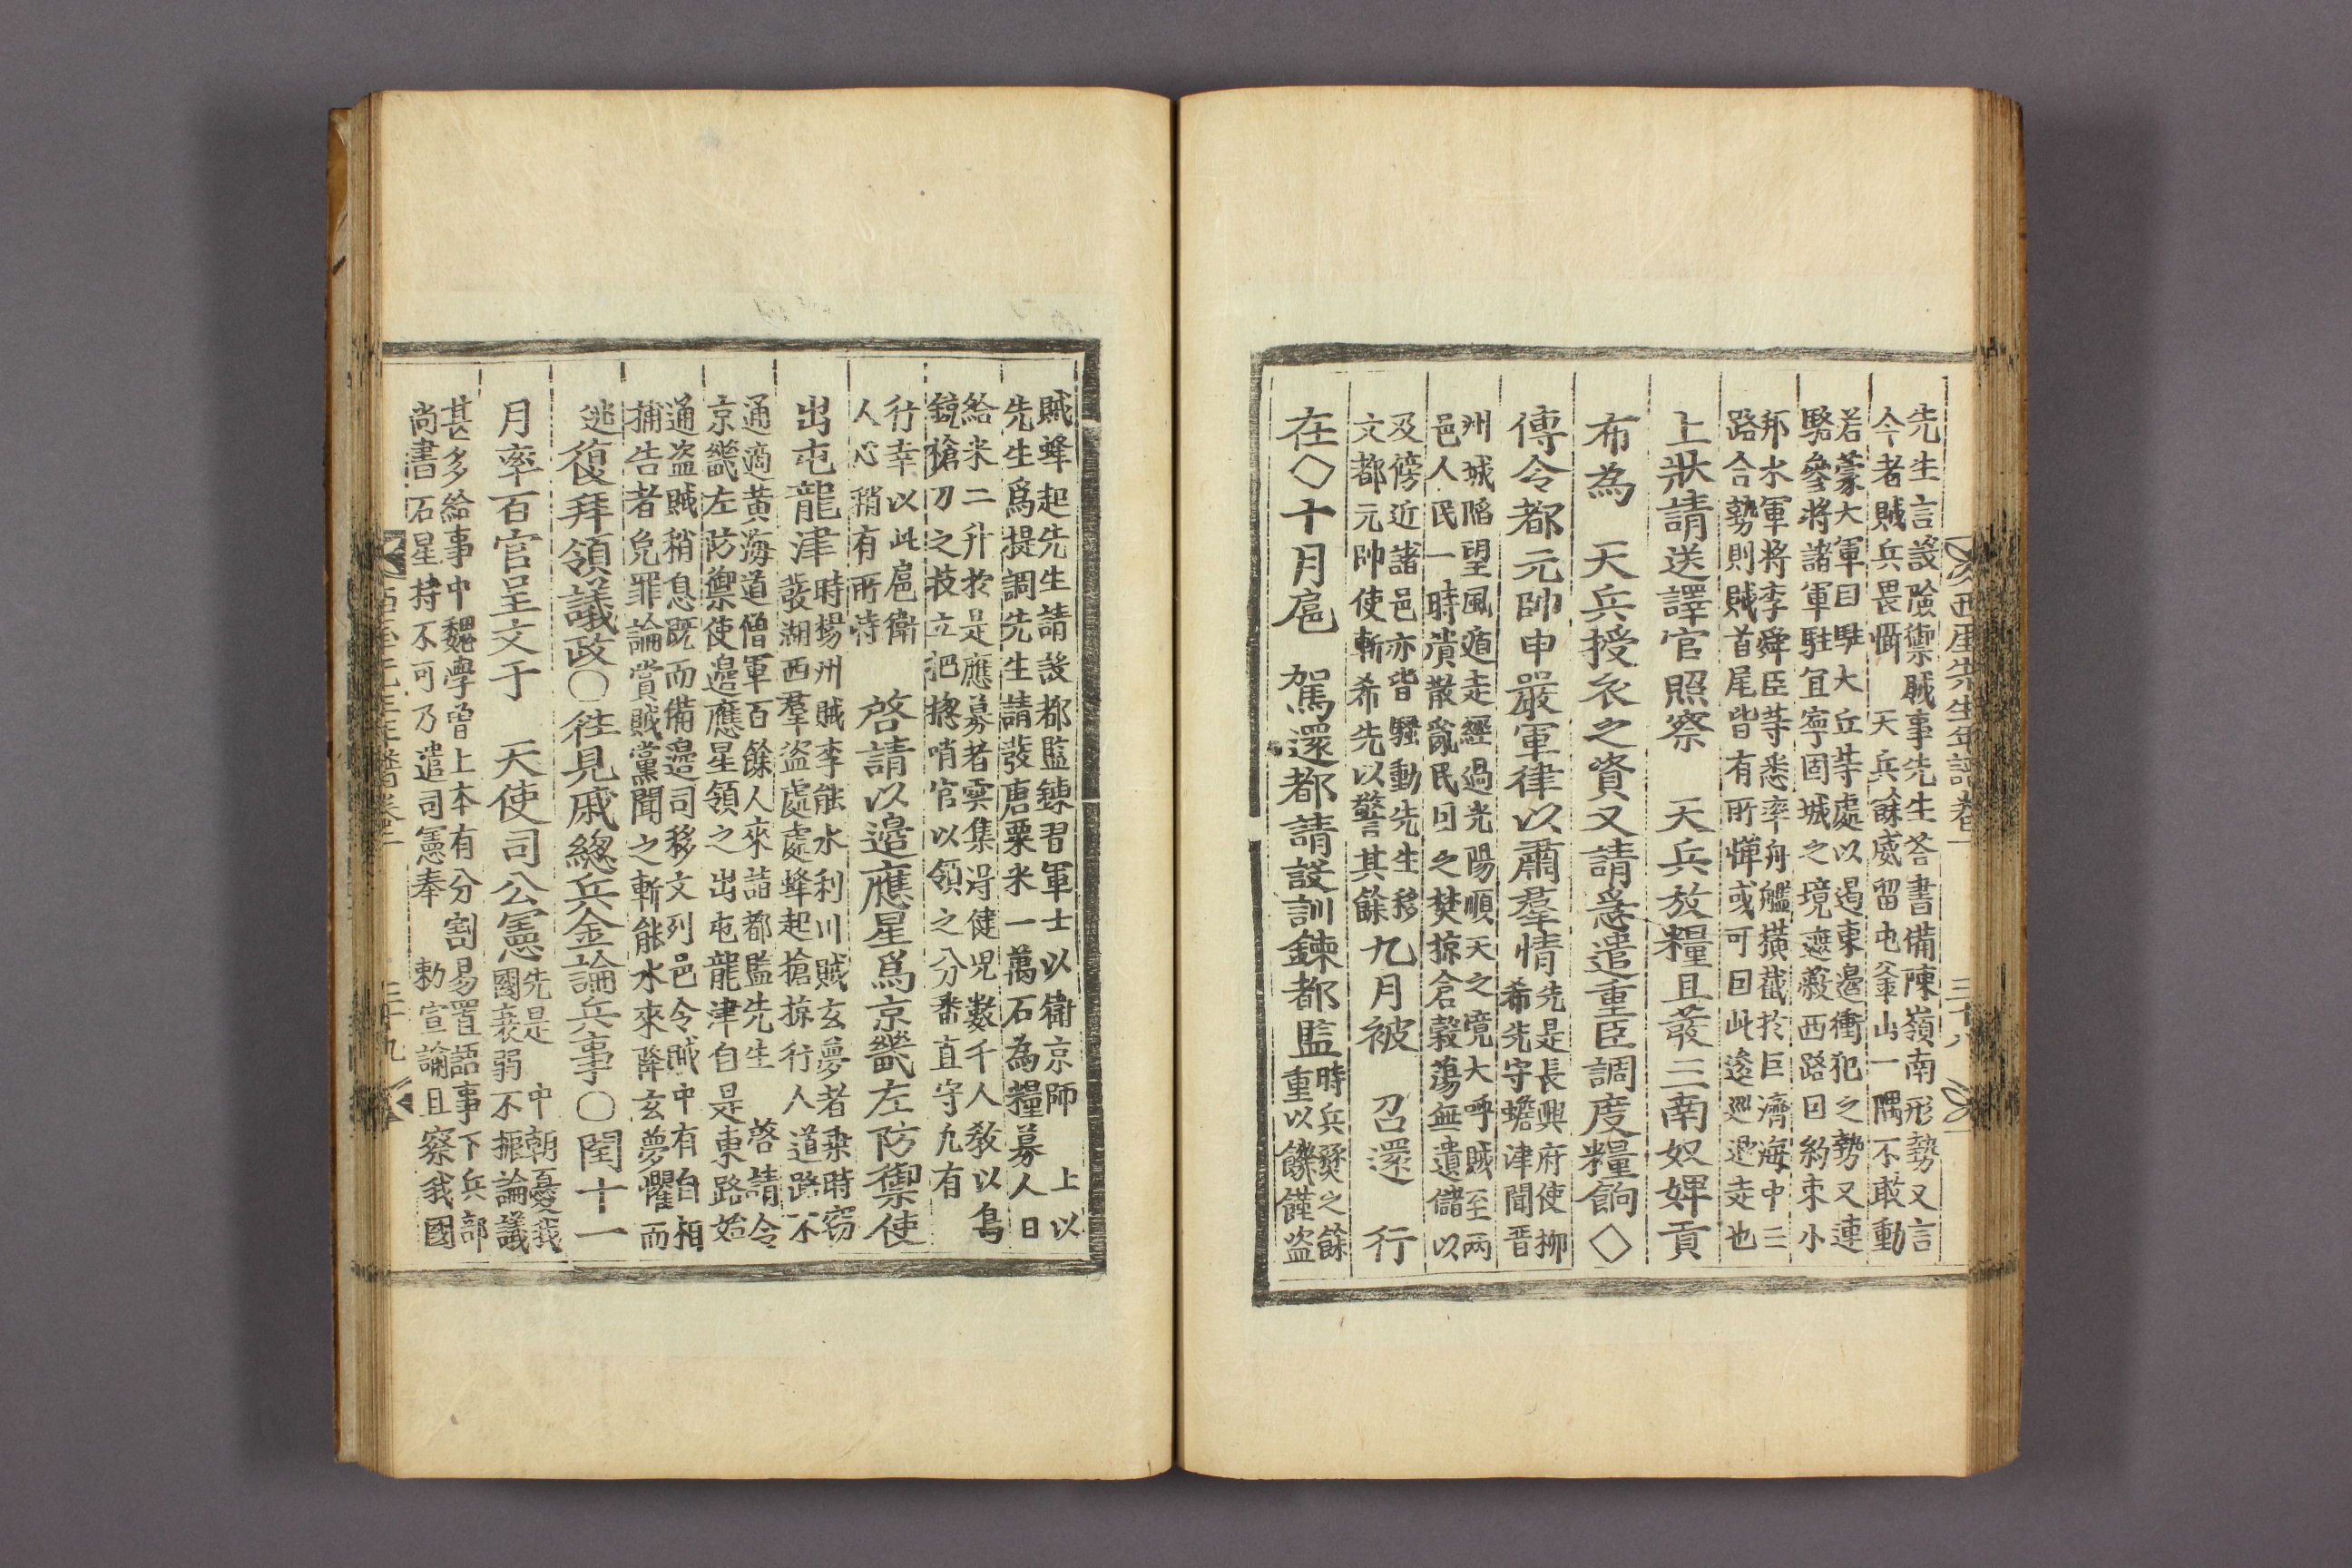 西厓先生年譜卷一 三十八
先生言設險禦賊事先生答書備陳嶺南形勢又言
今者賊兵畏懾 天兵餘威留屯釜山一隅不敢動
若蒙大軍目駐大丘等處以遏東邊衝犯之勢又連
駱參將諸軍駐宜寧固城之境遮蔽西路回約束小
邦水軍將李舜臣等悉率舟艦橫截於巨濟海中三
路合勢則賊首尾皆有所憚或可因此逡巡退走也
上狀請送譯官照察 天兵放糧且發三南奴婢貢
布為 天兵授衣之資又請急遣重臣調度糧餉◇
傳令都元帥申嚴軍律以肅羣情
先是長興府使柳
希先守蟾津聞晋
州城陷望風遁走經過光陽順天之境大呼賊至兩
邑人民一時潰散亂民回之焚掠倉穀蕩無遺儲以
及傍近諸邑亦皆騷動先生移
文都元帥使斬希先以警其餘
九月被 召還 行
在◇十月扈 駕還都請設訓鍊都監
時兵燹之餘
重以饑饉盜
賊蜂起先生請設都監鍊習軍士以衛京師 上以
先生爲提調先生請發唐粟米一萬石為糧募人日
給米二升於是應募者雲集得健児數千人教以鳥
銃槍刀之技立把摠哨官以領之分番直守凡有
行幸以此扈衛
人心稍有所恃
啓請以邉應星爲京畿左防禦使
出屯龍津
時揚州賊李能水利川賊玄夢者乘時竊
發湖西羣盜處處蜂起搶掠行人道路不
通適黃海道僧軍百餘人來詣都監先生 啓請令
京畿左防禦使邉應星領之出屯龍津自是東路始
通盜賊稍息既而備邉司移文列邑令賊中有自相
捕告者免罪論賞賊黨聞之斬能水來降玄夢懼而
逃
復拜領議政○往見戚緫兵金論兵事○閏十一
月率百官呈文于 天使司公憲
先是 中朝憂我
國衰弱不振論議
甚多給事中魏學曾上本有分割易置語事下兵部
尚書石星持不可乃遣司憲奉 勅宣諭且察我國
三十九